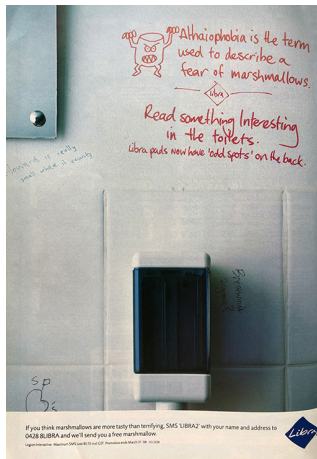 Althaiophobia is the term
used to describe a
fear of marshmallows.
Libra
Read something Interesting
in the toilets.
Libra pads now have 'odd spots' on the back.
is really
small
SP
If you think marshmallows are more tasty than terrifying, SMS 'LIBRA2' with your name and address to
0428 8LIBRA and we'll send you a free marshmallow.
Libra